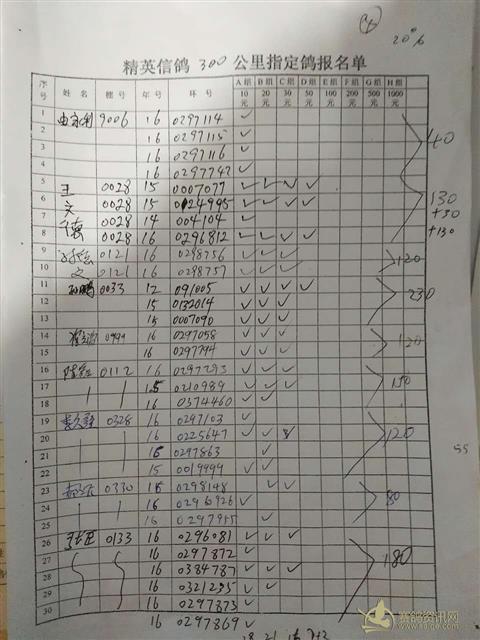 20%
精英信鸽 300 公里指定鸽报名单
序号 姓名 棚号 年号 环号 A组10元 B组20元 C组30元 D组50元 E组100元 F组200元 G组500元 H组1000元
1 9006 16 0297114 ✓
2 16 0297115 ✓
3 16 0297116 ✓
4 16 0297742 ✓ 40
5 王 0028 15 0007077 ✓ ✓ ✓ ✓
6 文 0028 15 0124995 ✓ ✓ ✓ ✓ 130
7 德 0028 14 004104 ✓ ✓ +30
8 0028 16 0296812 ✓ ✓ ✓ ✓ +130
9 0121 16 0298756 ✓ ✓ ✓
10 0121 16 0298757 ✓ ✓ ✓ 120
11 孙鹏 0033 12 091005 ✓ ✓ ✓ ✓
12 15 0132014 ✓ ✓ ✓ 230
13 15 0007090 ✓ ✓ ✓
14 0999 16 0297058 ✓ ✓ ✓
15 16 0297794 ✓ ✓ ✓ 120
16 0112 16 0297293 ✓ ✓ ✓
17 15 0210989 ✓ ✓ ✓
18 16 0374460 ✓ ✓ 150
19 0328 16 0297103 ✓
20 16 0225647 ✓ ✓ ✓ 120
21 16 0297863 ✓
22 15 0019999 ✓ ✓
55
23 0330 16 0298148 ✓ ✓
24 16 0296926 ✓ ✓ 80
25 16 0297955 ✓
26 0133 16 0296081 ✓ ✓ ✓
27 16 0297872 ✓ ✓
28 16 0384787 ✓ ✓ ✓ 180
29 16 0321235 ✓ ✓
30 16 0297873 ✓ ✓
16 0297869 ✓ ✓
赛鸽资讯网